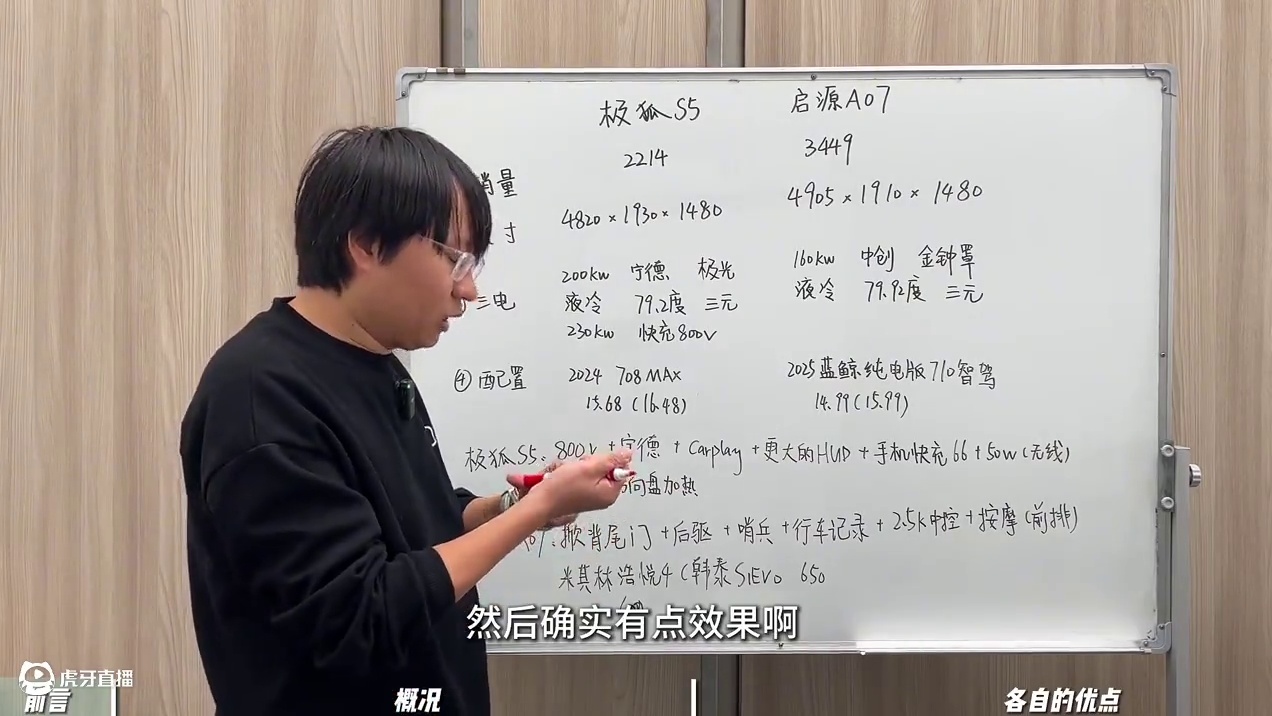 极狐S5 启源A07
销量 2214 3449
寸 4820×1930×1480 4905×1910×1480
三电 200kw 宁德 极光 160kw 中创 金钟罩
液冷 79.2度 三元 液冷 79.92度 三元
230kw 快充800V
④配置 2024 708MAX 2025蓝鲸纯电版710智驾
15.68(16.48) 14.99(15.99)
极狐S5:800V+宁德+Carplay+更大的HUD+手机快充66+50w(无线)
向盘加热
07:掀背尾门+后驱+哨兵+行车记录+2.5K中控+按摩(前排)
米其林浩悦4(韩泰S1EVo 650
然后确实有点效果啊
虎牙直播
前言 概况 各自的优点